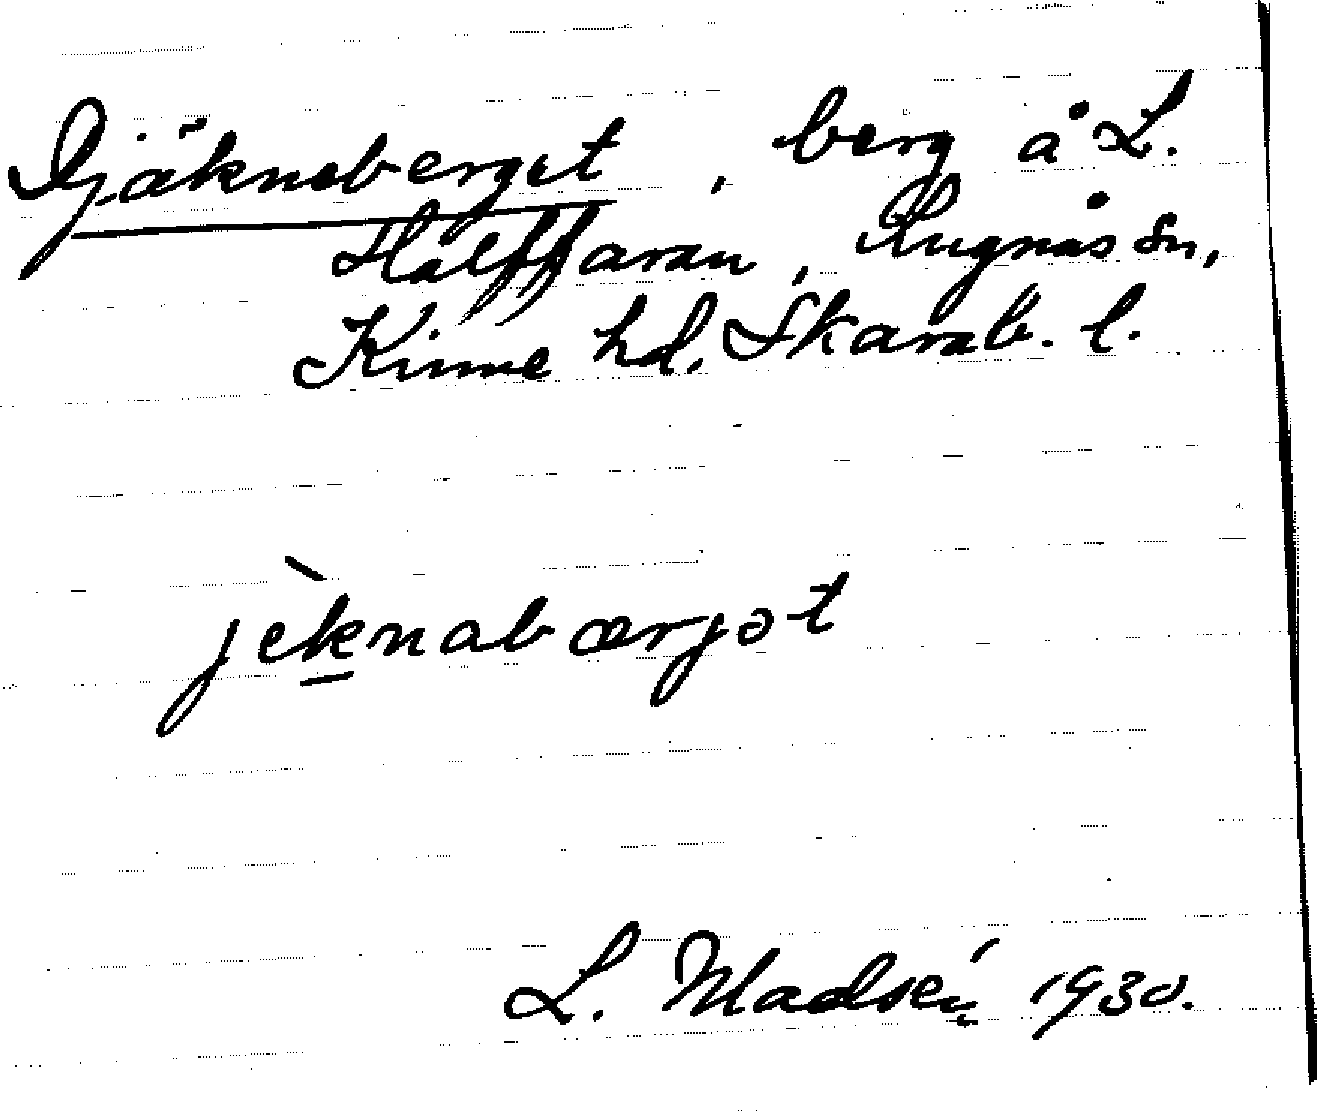 Djäkneberget, berg å L.
Hälffaran, Rugnås sn,
Kinne hd. Skarab. l.
jèknabærjət
L. Madsén 1930.